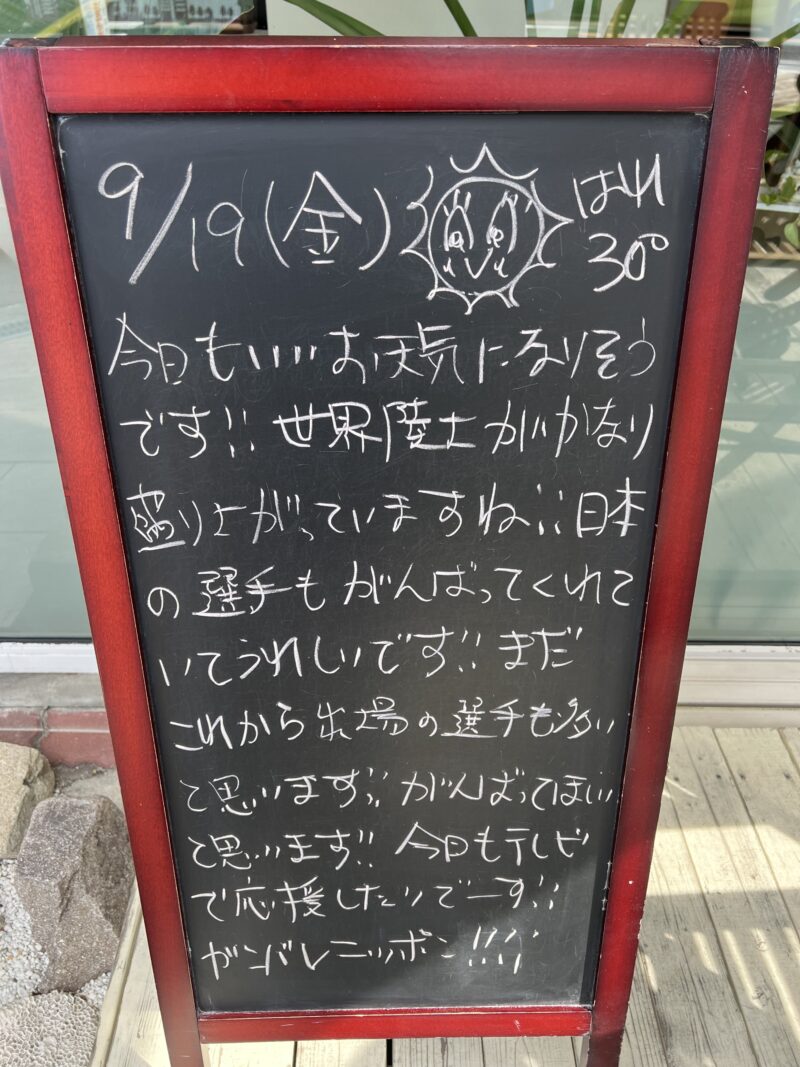 9/19(金) はれ
30°
今日もいいお天気になりそう
です!! 世界陸上がかなり
盛り上がっていますね!! 日本
の選手もがんばってくれて
いてうれしいです!! まだ
これから出場の選手も多い
と思います!! がんばってほしい
と思います!! 今日もテレビ
で応援したいでーす!!
ガンバレニッポン!!!